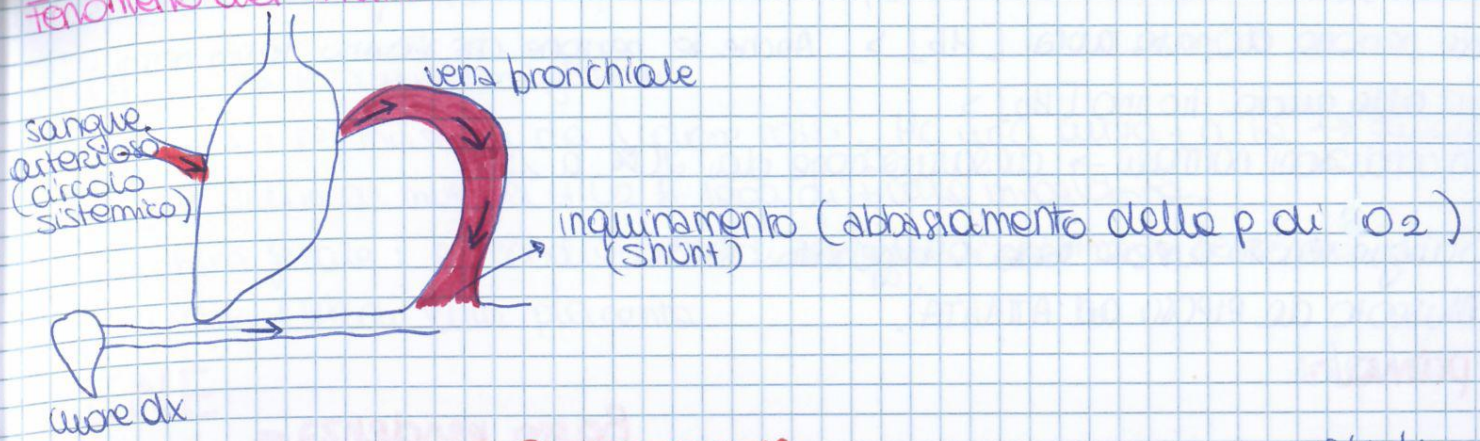 Fenomeno
vena bronchiale
sangue
arterioso
(circolo
sistemico)
inquinamento (abbassamento della p di O2)
(shunt)
cuore dx